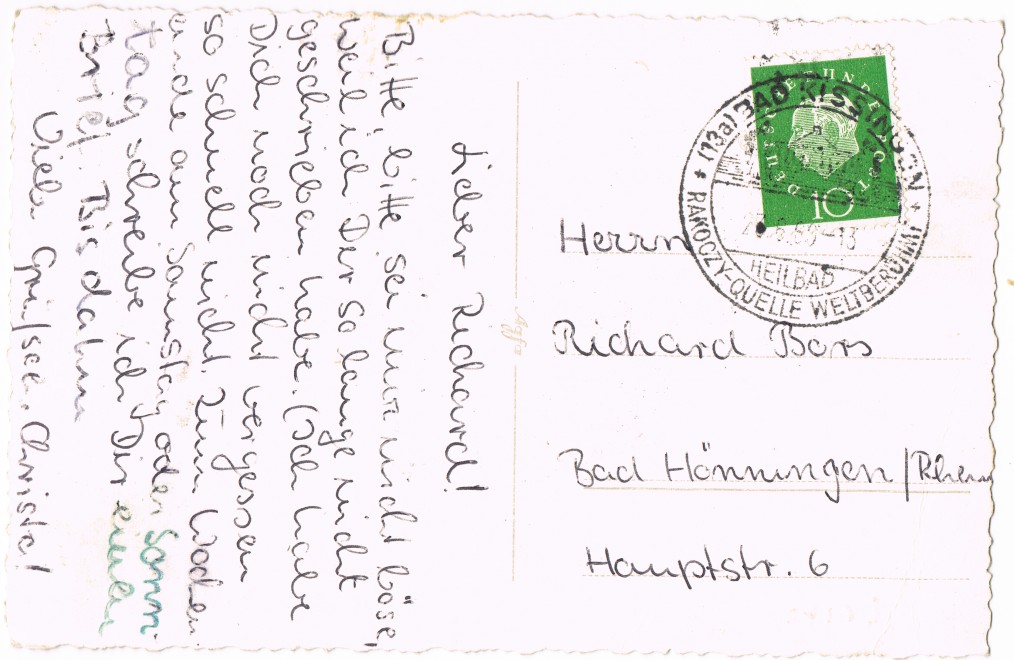 Lieber Richard!
Bitte, bitte sei mir nicht böse,
weil ich Dir so lange nicht
geschrieben habe. (Ich habe
Dich noch nicht vergessen
so schnell nicht. Zum Wochen-
ende am Samstag oder Sonn-
tag schreibe ich Dir einen
Brief. Bis dahin
Viele Grüße, Christa!
DEUTSCHE BUNDESPOST
10
(13a) BAD KISSINGEN
-13
HEILBAD
RAKOCZY-QUELLE WELTBERÜHMT
Agfa
Herrn
Richard Bors
Bad Hönningen/Rhein
Hauptstr. 6